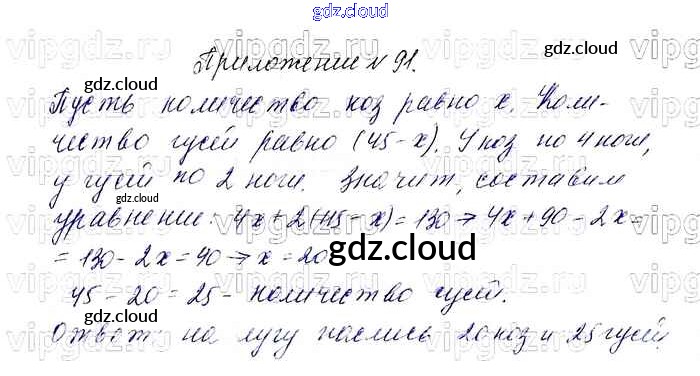 gdz.cloud
Приложение № 91.
Пусть количество коз равно x. Коли-
чество гусей равно (45-x). У коз по 4 ноги,
у гусей по 2 ноги. Значит, составим
уравнение: 4x+2(45-x)=130 → 4x+90-2x=
=130-2x=40 → x=20
45-20=25- количество гусей.
Ответ: на лугу паслись 20 коз и 25 гусей